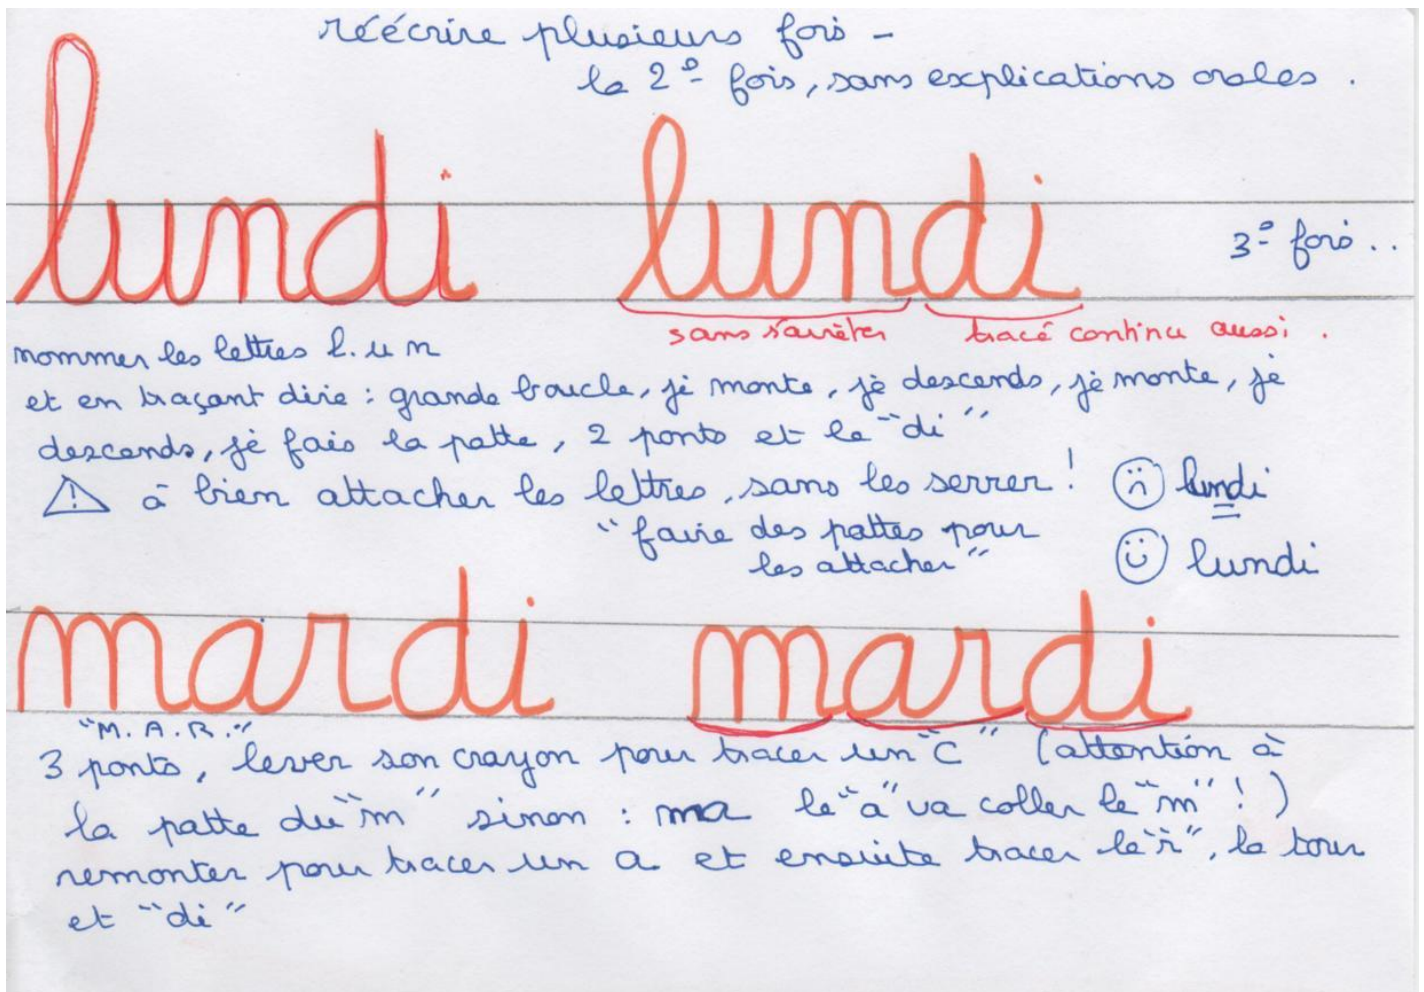 réécrire plusieurs fois -
la 2º fois, sans explications orales.
lundi lundi
3º fois ..
sans s'arrêter tracé continu aussi.
nommer les lettres l. u n
et en traçant dire : grande boucle, je monte, je descends, je monte, je
descends, je fais la patte, 2 ponts et le "di"
⚠ à bien attacher les lettres, sans les serrer ! ☹ lundi
"faire des pattes pour
les attacher" ☺ lundi
mardi mardi
"M. A. R."
3 ponts, lever son crayon pour tracer un "C" (attention à
la patte du "m" sinon : ma le "a" va coller le "m" ! )
remonter pour tracer un a et ensuite tracer le "r", la tour
et "di"